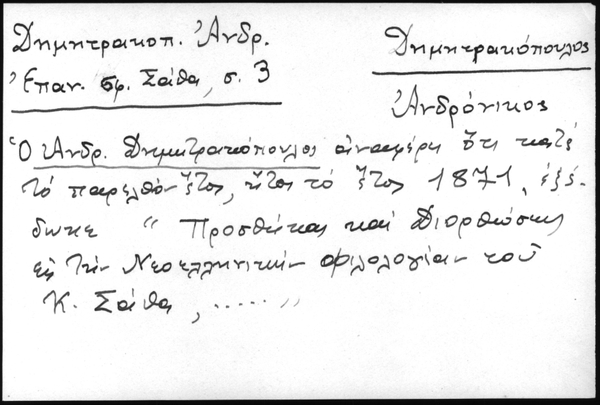 Δημητρακοπ. Ἀνδρ.
Ἐπαν. σφ. Σάθα, σ. 3
Δημητρακόπουλος
Ἀνδρόνικος
Ὁ Ἀνδρ. Δημητρακόπουλος ἀναφέρει ὅτι κατά
τό παρελθόν ἔτος, ἤτοι τό ἔτος 1871, ἐξέ-
δωκε “ Προσθήκας καί Διορθώσεις
εἰς τήν Νεοελληνικήν φιλολογίαν τοῦ
Κ. Σάθα, ...... ”